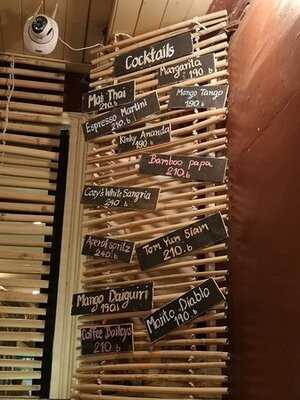 Cocktails
Margarita
190.฿
Mai Thai
210.฿
Mango Tango
190.฿
Espresso Martini
210.฿
Kinky Ananda
190.฿
Bamboo papa
210.฿
Cozy's White Sangria
240.฿
Aperol spritz
240.฿
Tom Yum Siam
210.฿
Mango Daiquiri
190.฿
Mojito Diablo
190.฿
Coffee Baileys
210.฿